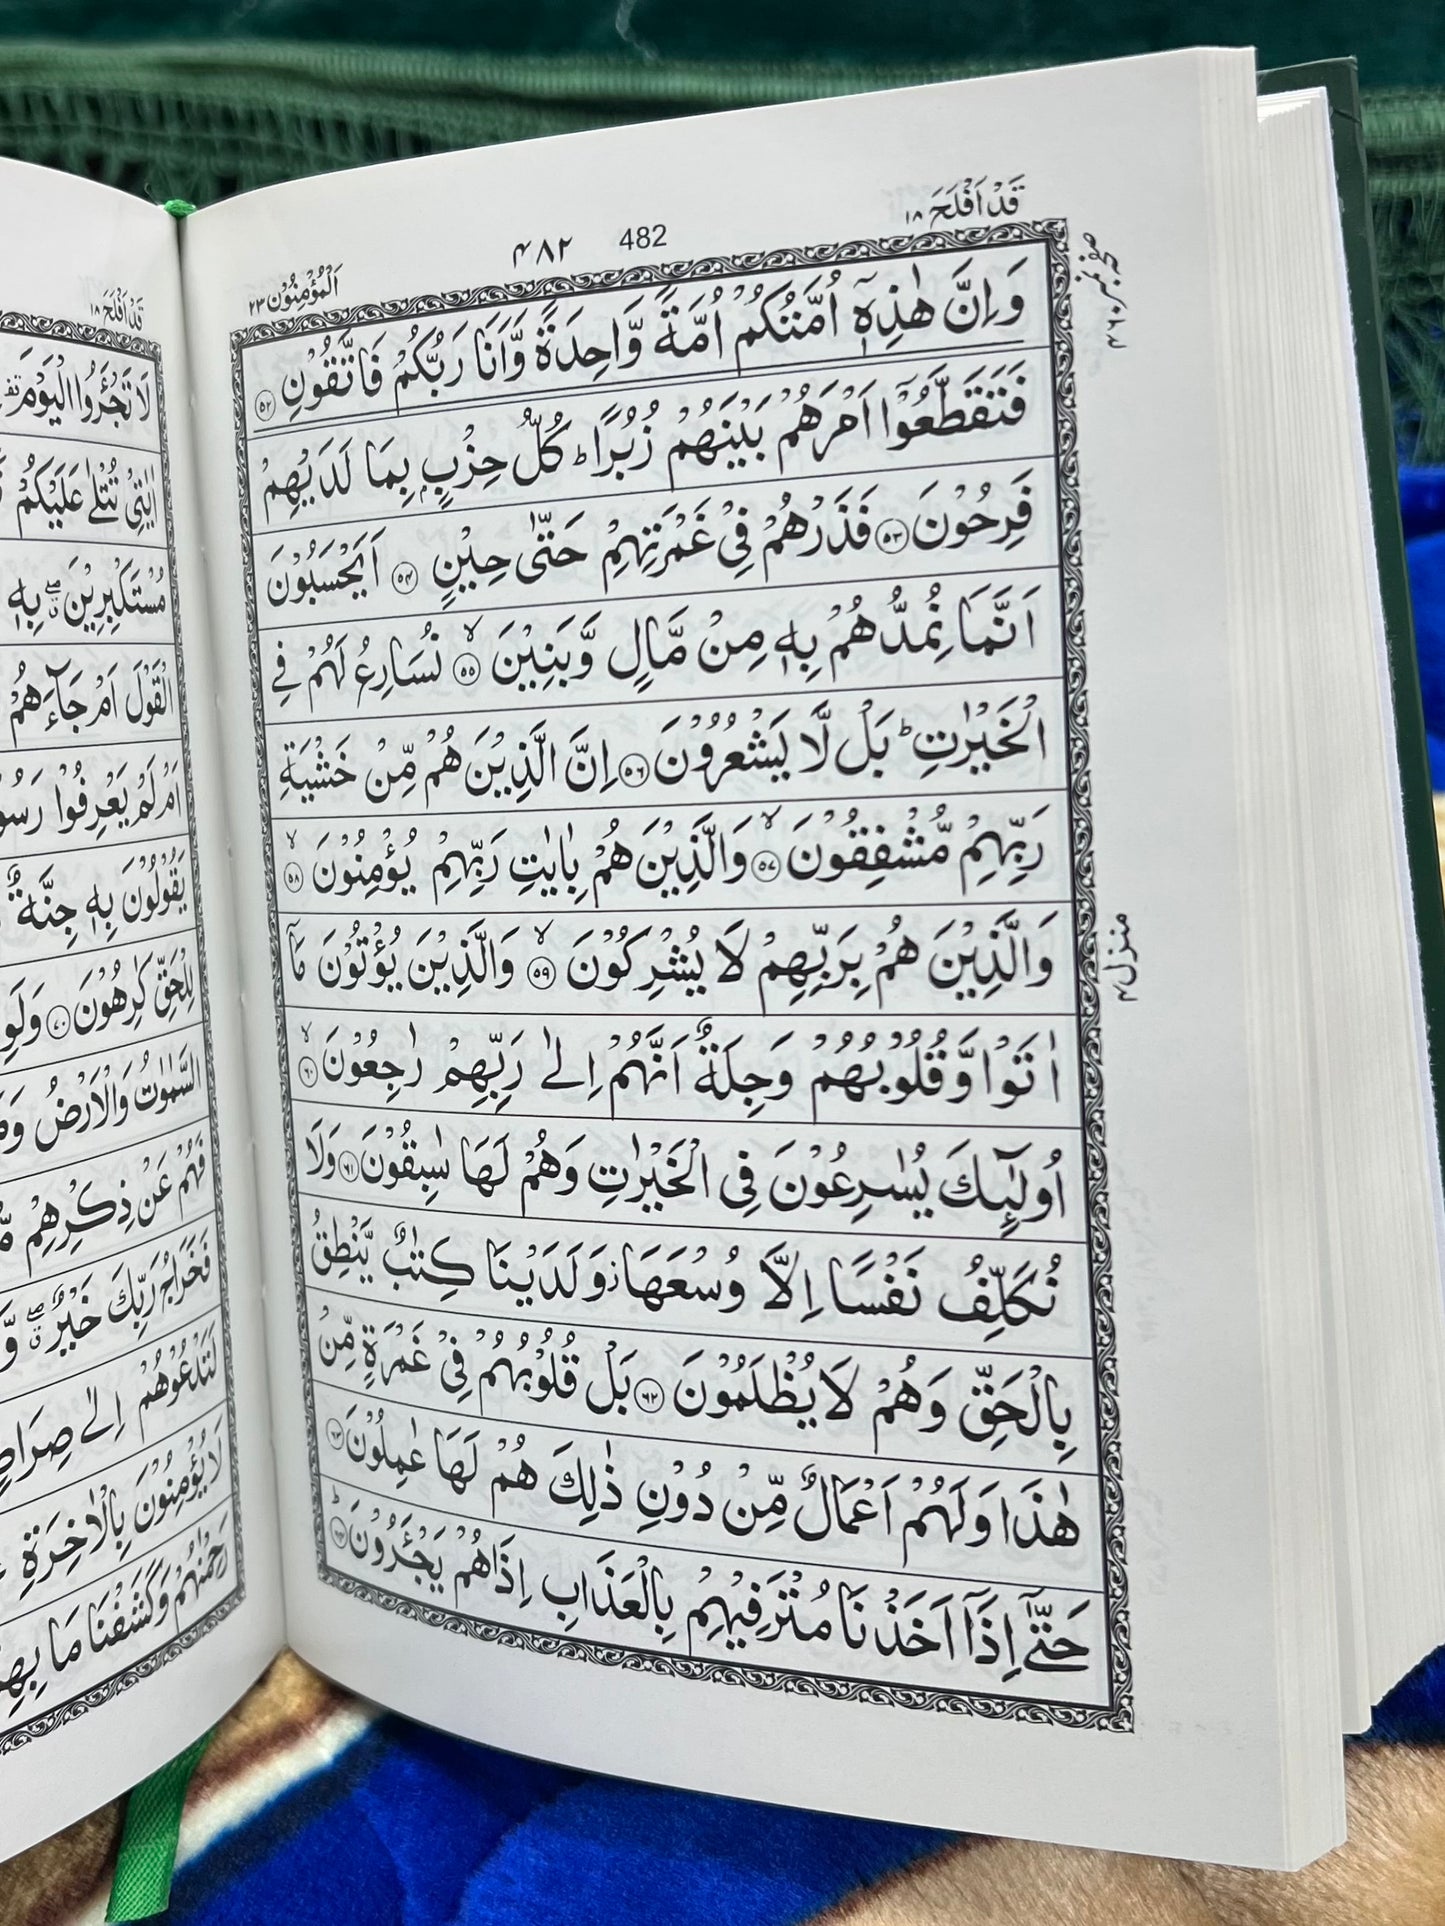 قَدْ اَفْلَحَ ١٨
٤٨٢ 482
اَلْمُؤْمِنُوْن ٢٣
وَاِنَّ هٰذِهٖۤ اُمَّتُكُمْ اُمَّةً وَّاحِدَةً وَّاَنَا رَبُّكُمْ فَاتَّقُوْنِ ۝٥٢
فَتَقَطَّعُوْۤا اَمْرَهُمْ بَيْنَهُمْ زُبُرًا ؕ كُلُّ حِزْبٍۭ بِمَا لَدَيْهِمْ
فَرِحُوْنَ ۝٥٣ فَذَرْهُمْ فِيْ غَمْرَتِهِمْ حَتّٰى حِيْنٍ ۝٥٤ اَيَحْسَبُوْنَ
اَنَّمَا نُمِدُّهُمْ بِهٖ مِنْ مَّالٍ وَّبَنِيْنَ ۙ۝٥٥ نُسَارِعُ لَهُمْ فِي
الْخَيْرٰتِ ؕ بَلْ لَّا يَشْعُرُوْنَ ۝٥٦ اِنَّ الَّذِيْنَ هُمْ مِّنْ خَشْيَةِ
رَبِّهِمْ مُّشْفِقُوْنَ ۙ۝٥٧ وَالَّذِيْنَ هُمْ بِاٰيٰتِ رَبِّهِمْ يُؤْمِنُوْنَ ۙ۝٥٨
وَالَّذِيْنَ هُمْ بِرَبِّهِمْ لَا يُشْرِكُوْنَ ۙ۝٥٩ وَالَّذِيْنَ يُؤْتُوْنَ مَاۤ
اٰتَوْا وَّقُلُوْبُهُمْ وَجِلَةٌ اَنَّهُمْ اِلٰى رَبِّهِمْ رٰجِعُوْنَ ۙ۝٦٠
اُولٰٓئِكَ يُسٰرِعُوْنَ فِي الْخَيْرٰتِ وَهُمْ لَهَا سٰبِقُوْنَ ۝٦١ وَلَا
نُكَلِّفُ نَفْسًا اِلَّا وُسْعَهَا ز وَلَدَيْنَا كِتٰبٌ يَّنْطِقُ
بِالْحَقِّ وَهُمْ لَا يُظْلَمُوْنَ ۝٦٢ بَلْ قُلُوْبُهُمْ فِيْ غَمْرَةٍ مِّنْ
هٰذَا وَلَهُمْ اَعْمَالٌ مِّنْ دُوْنِ ذٰلِكَ هُمْ لَهَا عٰمِلُوْنَ ۝٦٣
حَتّٰۤى اِذَاۤ اَخَذْنَا مُتْرَفِيْهِمْ بِالْعَذَابِ اِذَا هُمْ يَجْـَٔرُوْنَ ؕ۝٦٤
منزل ٤
قَدْ اَفْلَحَ ١٨
لَا تَجْـَٔرُوا الْيَوْمَ
اٰيٰتِيْ تُتْلٰى عَلَيْكُمْ
مُسْتَكْبِرِيْنَ ۖۗ بِهٖ
الْقَوْلَ اَمْ جَآءَهُمْ
اَمْ لَمْ يَعْرِفُوْا
يَقُوْلُوْنَ بِهٖ جِنَّةٌ
لِلْحَقِّ كٰرِهُوْنَ ۝٧٠ وَلَوِ
السَّمٰوٰتُ وَالْاَرْضُ
فَهُمْ عَنْ ذِكْرِهِمْ
فَخَرَاجُ رَبِّكَ خَيْرٌ ۖۗ وَّ
لَتَدْعُوْهُمْ اِلٰى
لَا يُؤْمِنُوْنَ بِالْاٰخِرَةِ
رَحِمْنٰهُمْ وَكَشَفْنَا مَا